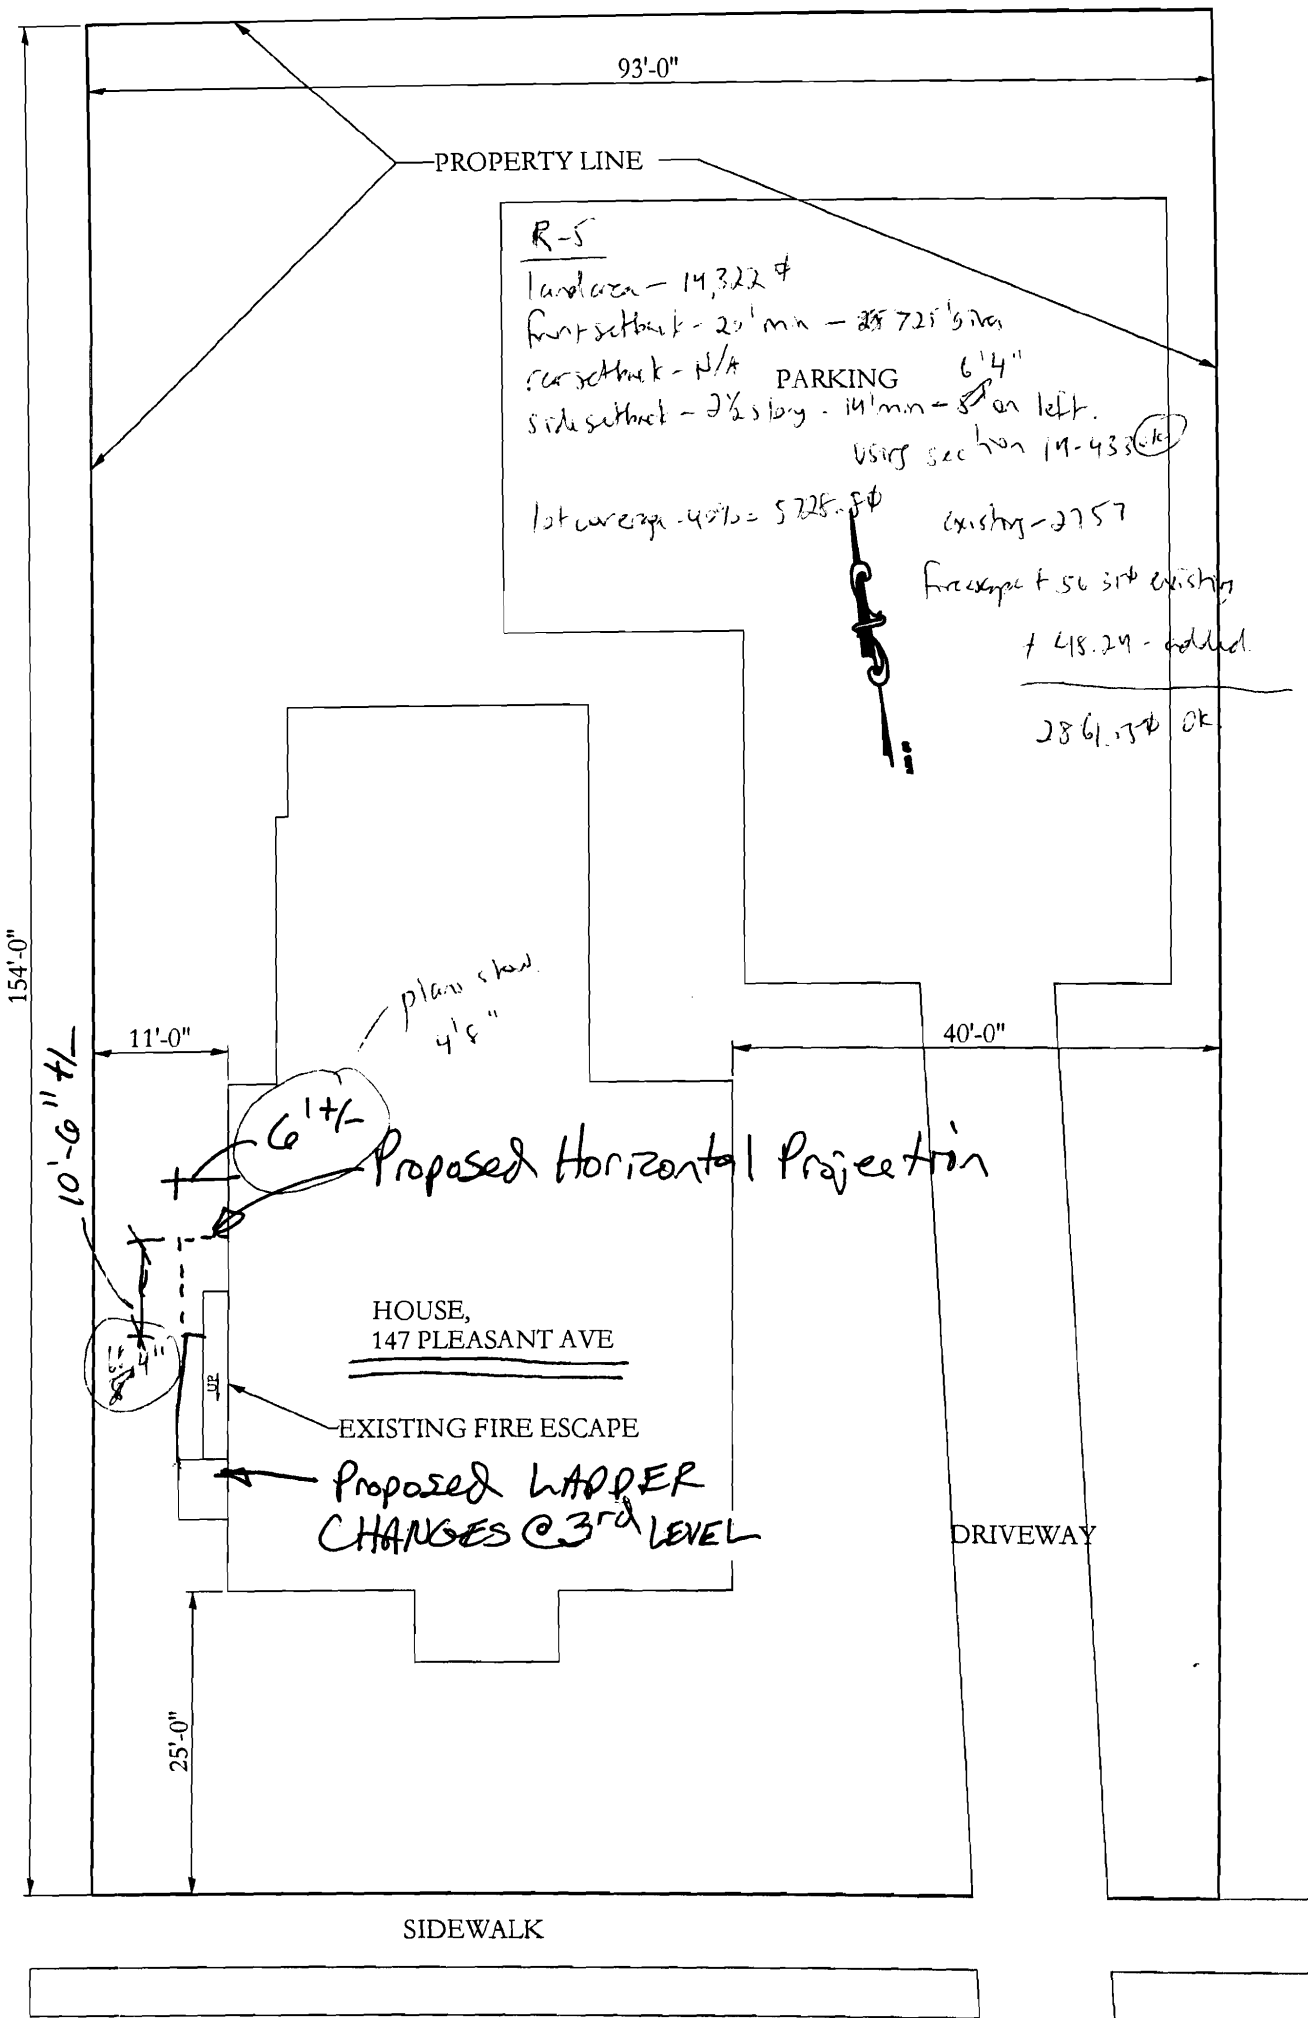 93'-0"
PROPERTY LINE
R-5
land area - 14,322 ⌀
front setback - 20' min -
rear setback - N/A
PARKING
6'4"
side setback - 2½ story - 14' min - on left.
using section 14-433 ok
lot coverage - 40% = 5728.8⌀
existing - 2757
fire escape + 56.31⌀ existing
+ 48.24 - added
2861.55⌀ OK
154'-0"
plans show
4'8"
11'-0"
40'-0"
10'-6" +/-
6' +/-
Proposed Horizontal Projection
HOUSE,
147 PLEASANT AVE
4"
UP
EXISTING FIRE ESCAPE
Proposed LADDER
CHANGES @ 3rd LEVEL
DRIVEWAY
25'-0"
SIDEWALK